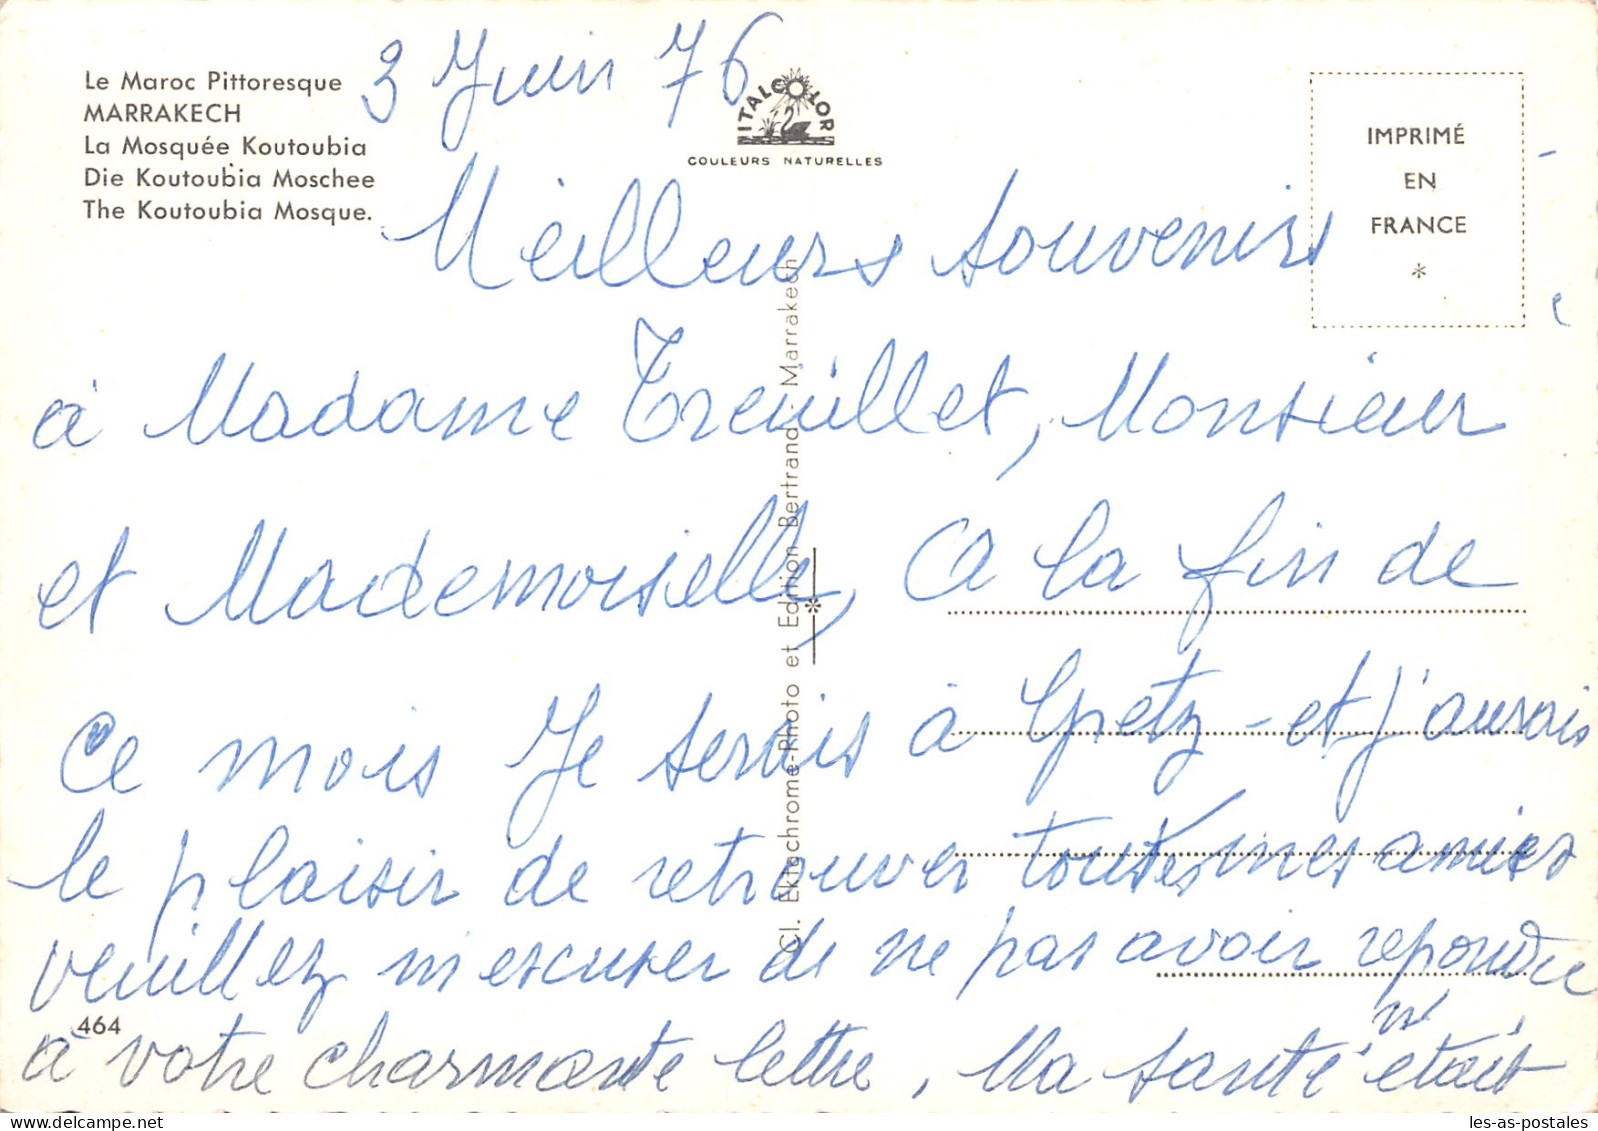 Le Maroc Pittoresque
MARRAKECH
La Mosquée Koutoubia
Die Koutoubia Moschee
The Koutoubia Mosque.
3 Juin 76
ITALCOLOR
COULEURS NATURELLES
IMPRIMÉ
EN
FRANCE
*
Meilleurs souvenirs
à Madame Treuillet, Monsieur
et Mademoiselle, A la fin de
Ce mois Je serais à Gretz - et J'aurais
le plaisir de retrouver toutes mes amies
veuillez m'escuser de ne pas avoir repondue
à votre charmante lettre, Ma santé n'
était
Cl. Ektachrome-Photo et Edition Bertrand - Marrakech
*
464
les-as-postales